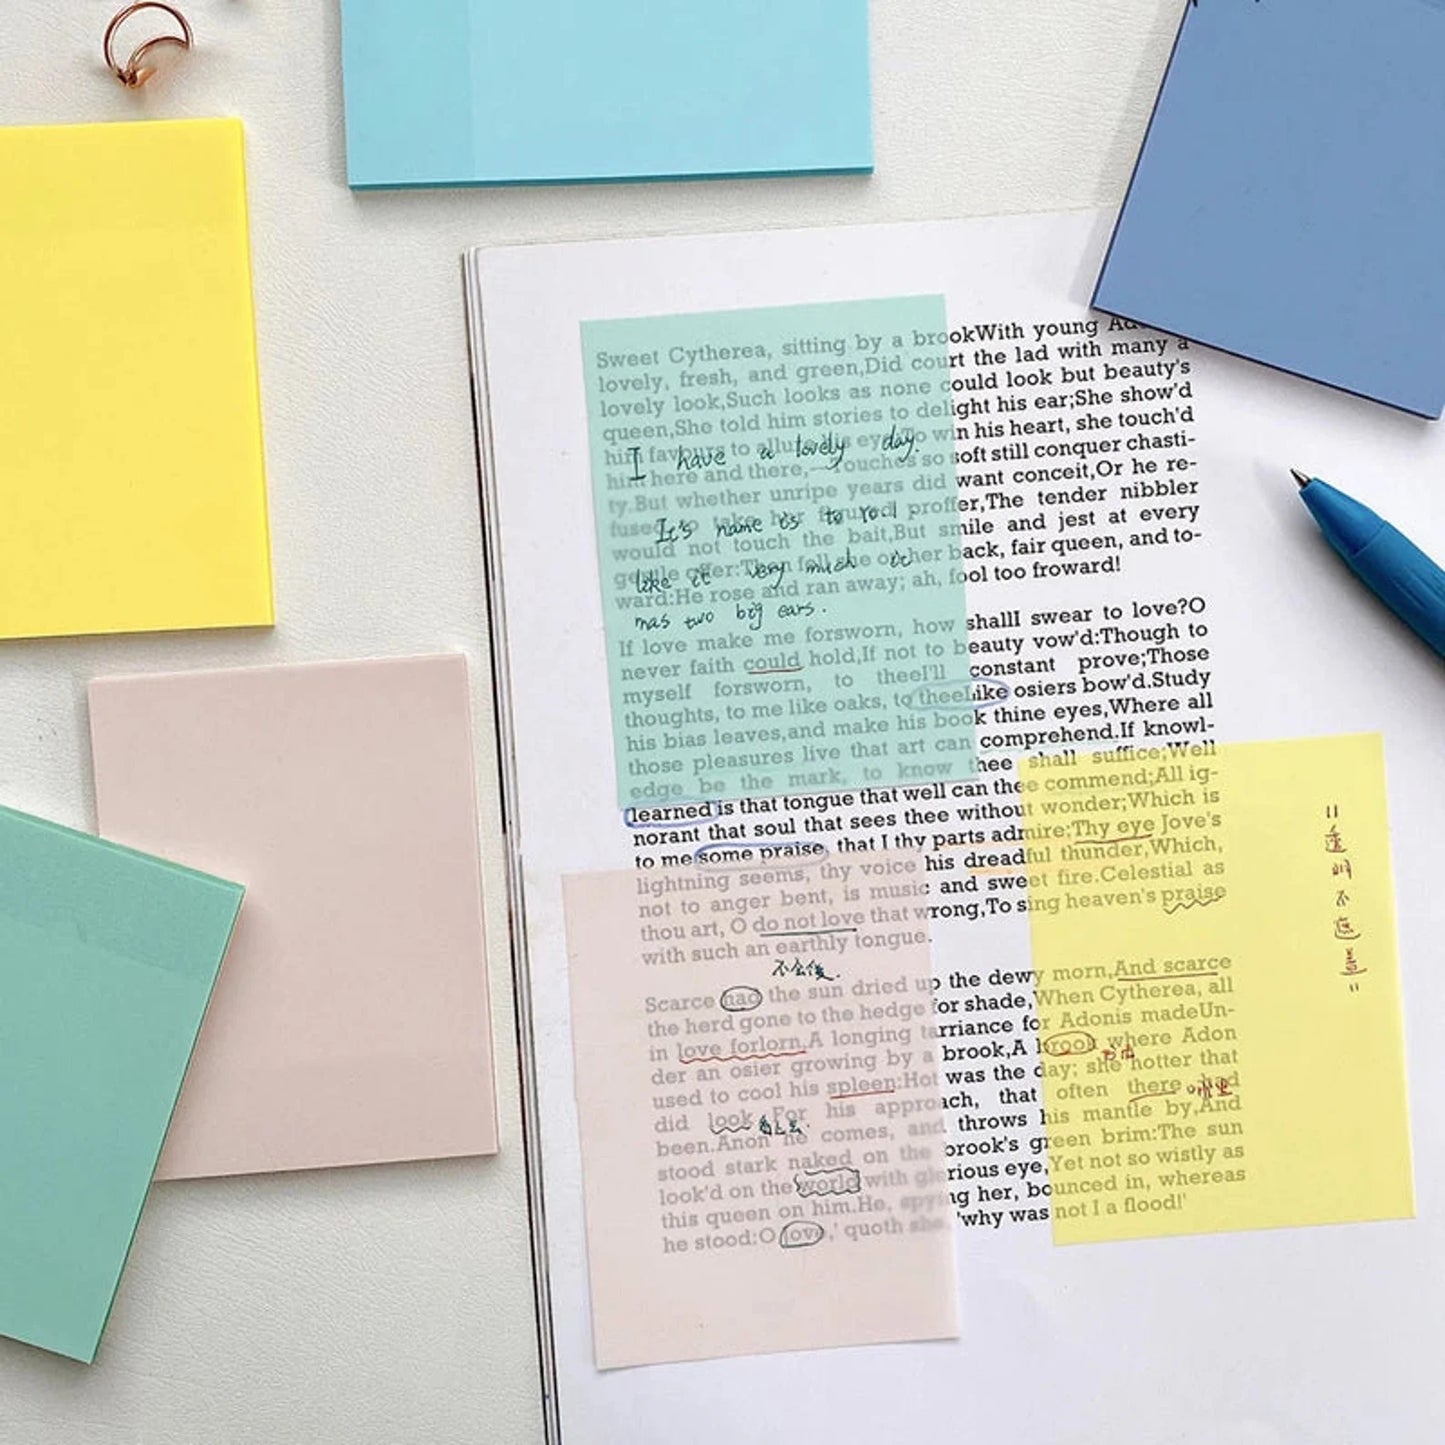 Sweet Cytherea, sitting by a brookWith young
lovely, fresh, and green,Did court the lad with many a
lovely look,Such looks as none could look but beauty's
queen,She told him stories to delight his ear;She show'd
him favours to allure his eye;To win his heart, she touch'd
I have a lovely day.
him here and there,—Touches so soft still conquer chasti-
ty.But whether unripe years did want conceit,Or he re-
fused to take her figured proffer,The tender nibbler
It's name is to
would not touch the bait,But smile and jest at every
gentle offer:Then fell she on her back, fair queen, and to-
like it very much
ward:He rose and ran away; ah, fool too froward!
two big ears.
If love make me forsworn, how shallI swear to love?O
never faith could hold,If not to beauty vow'd:Though to
myself forsworn, to theeI'll constant prove;Those
thoughts, to me like oaks, to theeLike osiers bow'd.Study
his bias leaves,and make his book thine eyes,Where all
those pleasures live that art can comprehend.If knowl-
edge be the mark, to know thee shall suffice;Well
learned is that tongue that well can thee commend;All ig-
norant that soul that sees thee without wonder;Which is
to me some praise, that I thy parts admire;Thy eye Jove's
lightning seems, thy voice his dreadful thunder,Which,
not to anger bent, is music and sweet fire.Celestial as
thou art, O do not love that wrong,To sing heaven's praise
with such an earthly tongue.
Scarce had the sun dried up the dewy morn,And scarce
the herd gone to the hedge for shade,When Cytherea, all
in love forlorn,A longing tarriance for Adonis madeUn-
der an osier growing by a brook,A brook where Adon
used to cool his spleen:Hot was the day; she hotter that
did look For his approach, that often there had
been.Anon he comes, and throws his mantle by,And
stood stark naked on the brook's green brim:The sun
look'd on the world with glorious eye,Yet not so wistly as
this queen on him.He, spying her, bounced in, whereas
he stood:O love,' quoth she, 'why was not I a flood!'